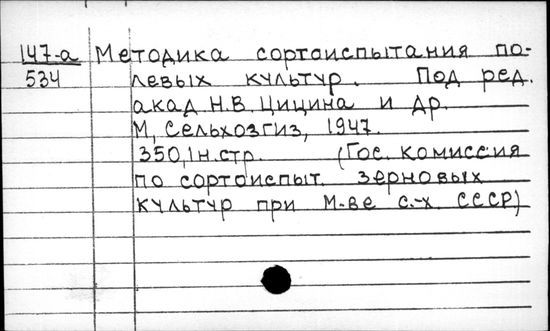 147-а Методика сортоиспытания по-
534 левых культур. Под ред.
акад Н.В. Цицина и др.
М, Сельхозгиз, 1947.
350,1н.стр. (Гос. комиссия
по сортоиспыт. зерновых
культур при М-ве с.-х. СССР)